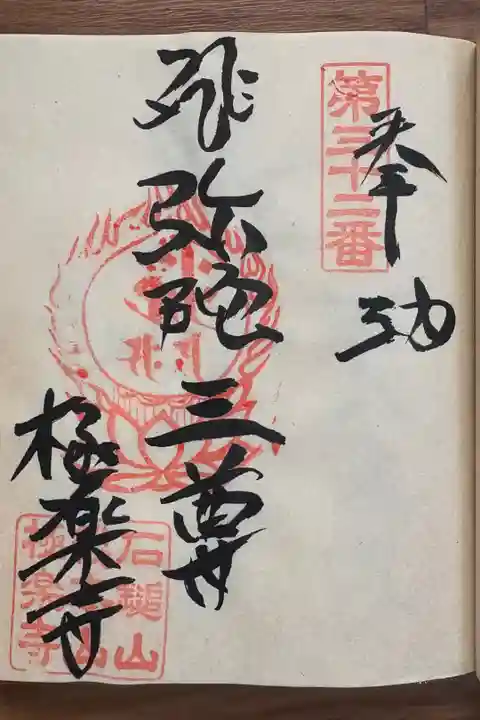 奉納
第三十二番
弥陀三尊
極楽寺
石鎚山
極楽寺